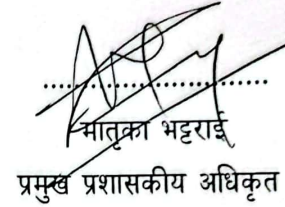 मातृका भट्टराई
प्रमुख प्रशासकीय अधिकृत